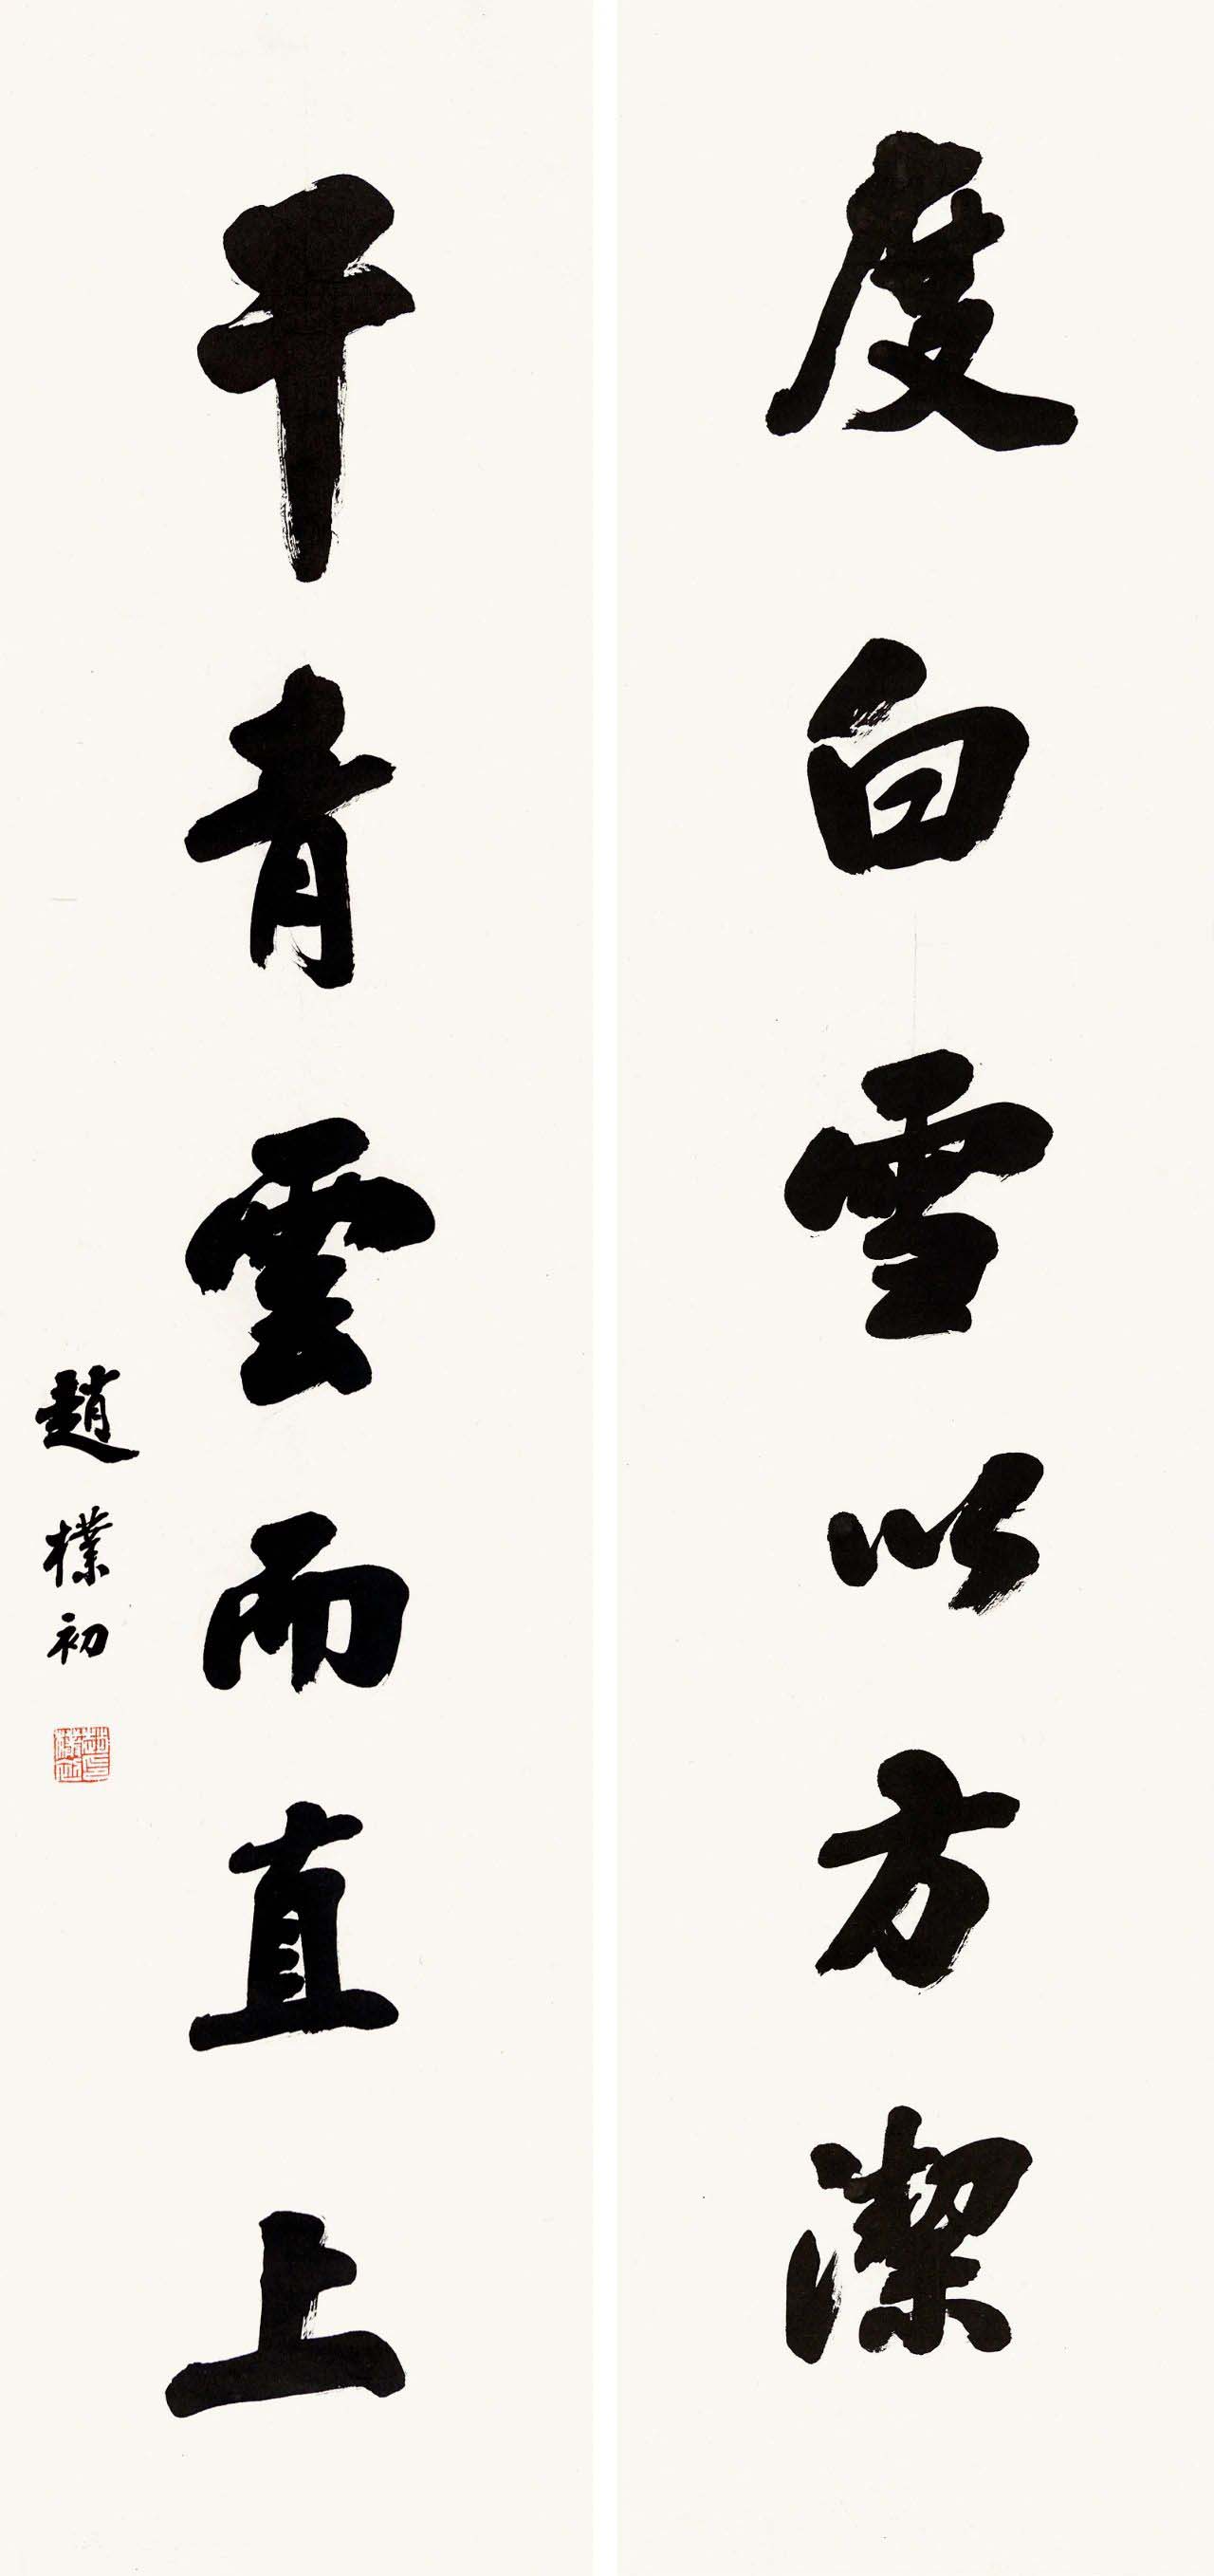 度白雪以方潔
干青雲而直上
趙樸初